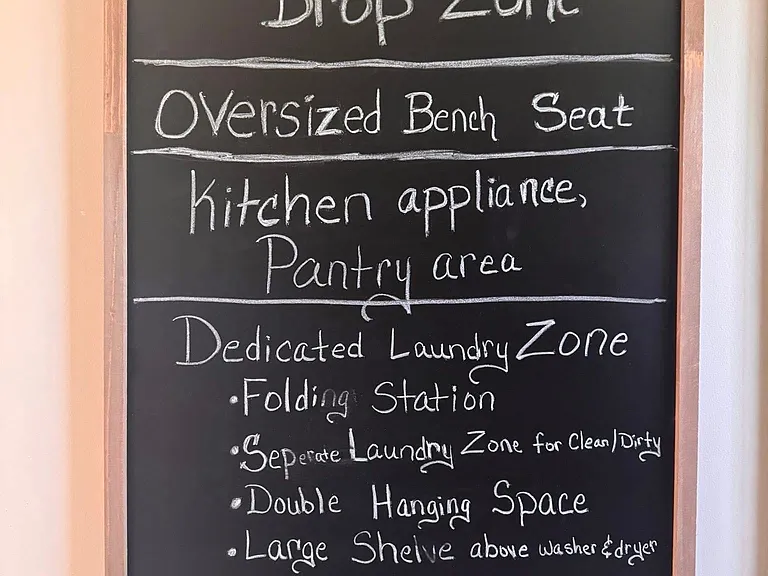 Drop Zone
Oversized Bench Seat
Kitchen appliance,
Pantry area
Dedicated Laundry Zone
• Folding Station
• Seperate Laundry Zone for Clean/Dirty
• Double Hanging Space
• Large Shelve above washer & dryer